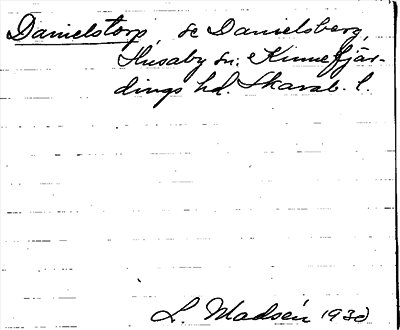 Danielstorp, se Danielsberg,
Husaby sn: Kinnefjär-
dings hd. Skarab. l.
L. Madsén 1930